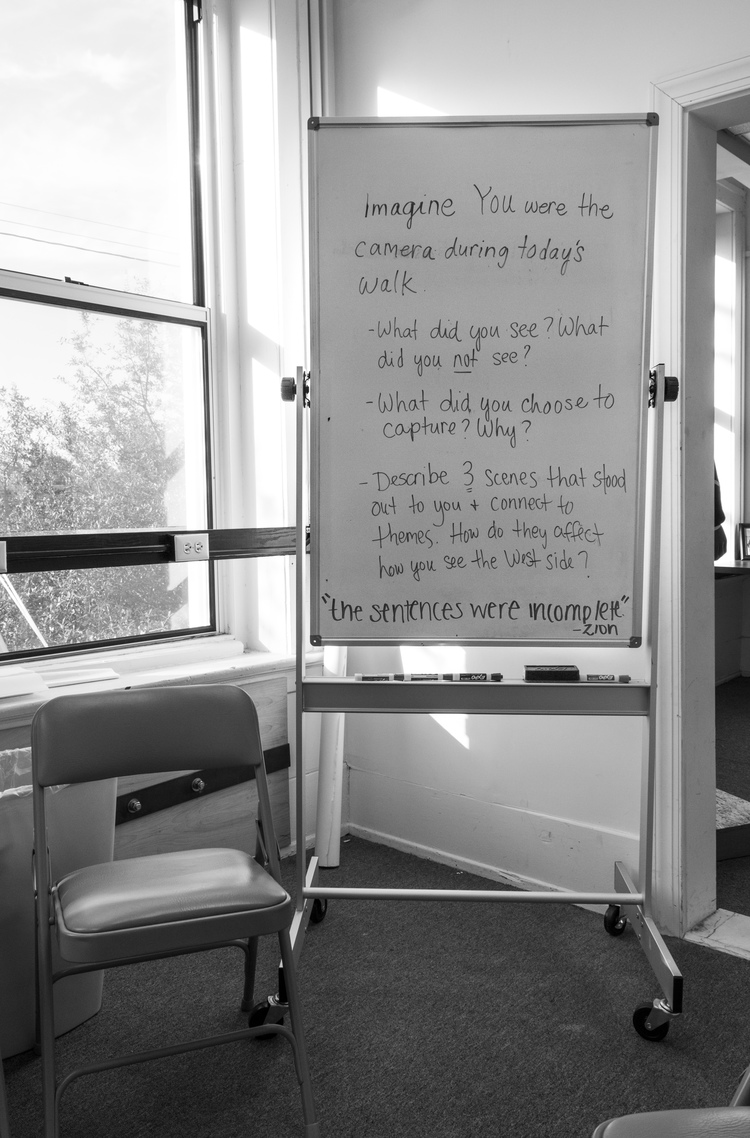 Imagine You were the
camera during today's
walk.
-What did you see? What
did you not see?
-What did you choose to
capture? Why?
- Describe 3 scenes that stood
out to you + connect to
themes. How do they affect
how you see the West side?
"the sentences were incomplete"
-Zion